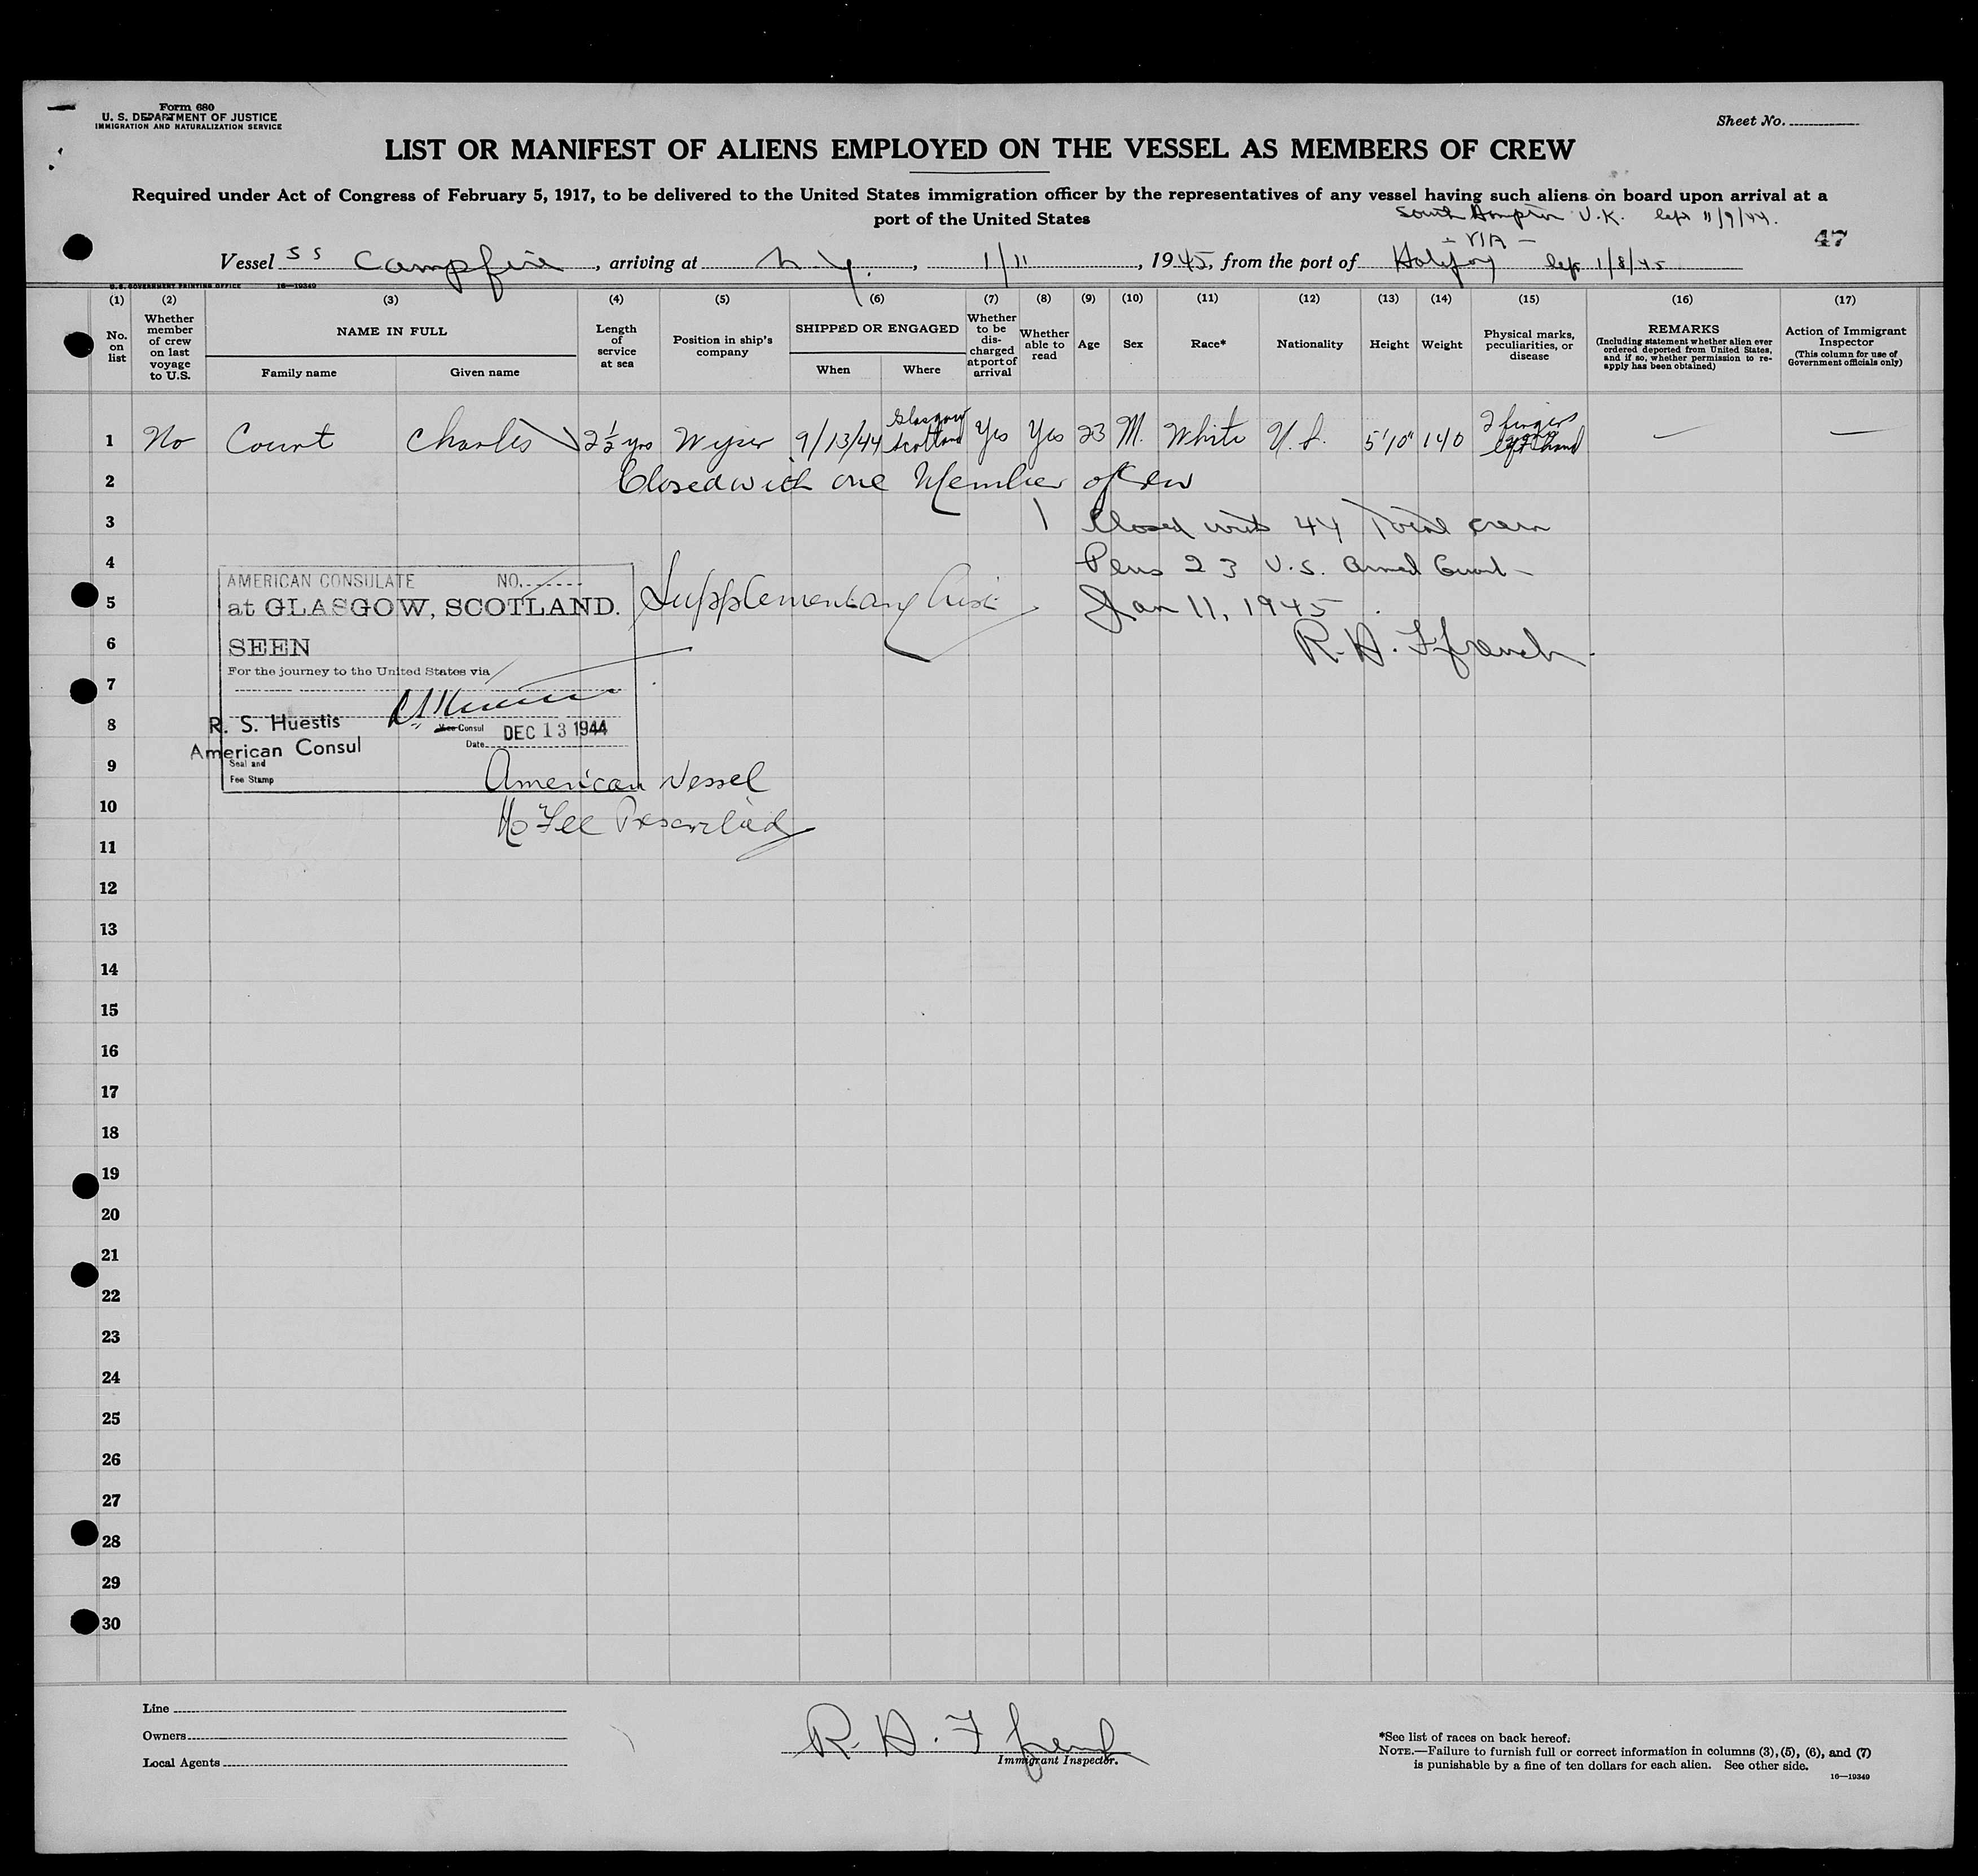 Form 680
U. S. DEPARTMENT OF JUSTICE
IMMIGRATION AND NATURALIZATION SERVICE
Sheet No.
LIST OR MANIFEST OF ALIENS EMPLOYED ON THE VESSEL AS MEMBERS OF CREW
Required under Act of Congress of February 5, 1917, to be delivered to the United States immigration officer by the representatives of any vessel having such aliens on board upon arrival at a
port of the United States
South Hampton U.K. 11/9/44.
- VIA -
47
Vessel SS Campfire, arriving at N.Y., 1/11, 1945, from the port of Halifax 1/8/45
U. S. GOVERNMENT PRINTING OFFICE 16—19349
(1) (2) (3) (4) (5) (6) (7) (8) (9) (10) (11) (12) (13) (14) (15) (16) (17)
No. on list
Whether member of crew on last voyage to U.S.
NAME IN FULL
Family name
Given name
Length of service at sea
Position in ship's company
SHIPPED OR ENGAGED
When
Where
Whether to be discharged at port of arrival
Whether able to read
Age
Sex
Race*
Nationality
Height
Weight
Physical marks, peculiarities, or disease
REMARKS
(Including statement whether alien ever ordered deported from United States, and if so, whether permission to reapply has been obtained)
Action of Immigrant Inspector
(This column for use of Government officials only)
1 No Court Charles 2½ yrs Wiper 9/13/44 Glasgow Scotland Yes Yes 23 M. White U.S. 5'10" 140 2 fingers left hand — —
2 Closed with one Member of Crew
3 Closed with 44 Total crew
4 Plus 23 U.S. Armed Guard -
5 Supplementary List
Jan 11, 1945.
6 R. H. Ffrench
AMERICAN CONSULATE NO.
at GLASGOW, SCOTLAND.
SEEN
For the journey to the United States via
7
8
R. S. Huestis
American Consul
Vice Consul
Date DEC 13 1944
Seal and
Fee Stamp
9
American Vessel
10
No Fee Prescribed
11
12
13
14
15
16
17
18
19
20
21
22
23
24
25
26
27
28
29
30
Line
Owners
Local Agents
R. H. Ffrench
Immigrant Inspector.
*See list of races on back hereof.
NOTE.—Failure to furnish full or correct information in columns (3), (5), (6), and (7)
is punishable by a fine of ten dollars for each alien. See other side.
16—19349